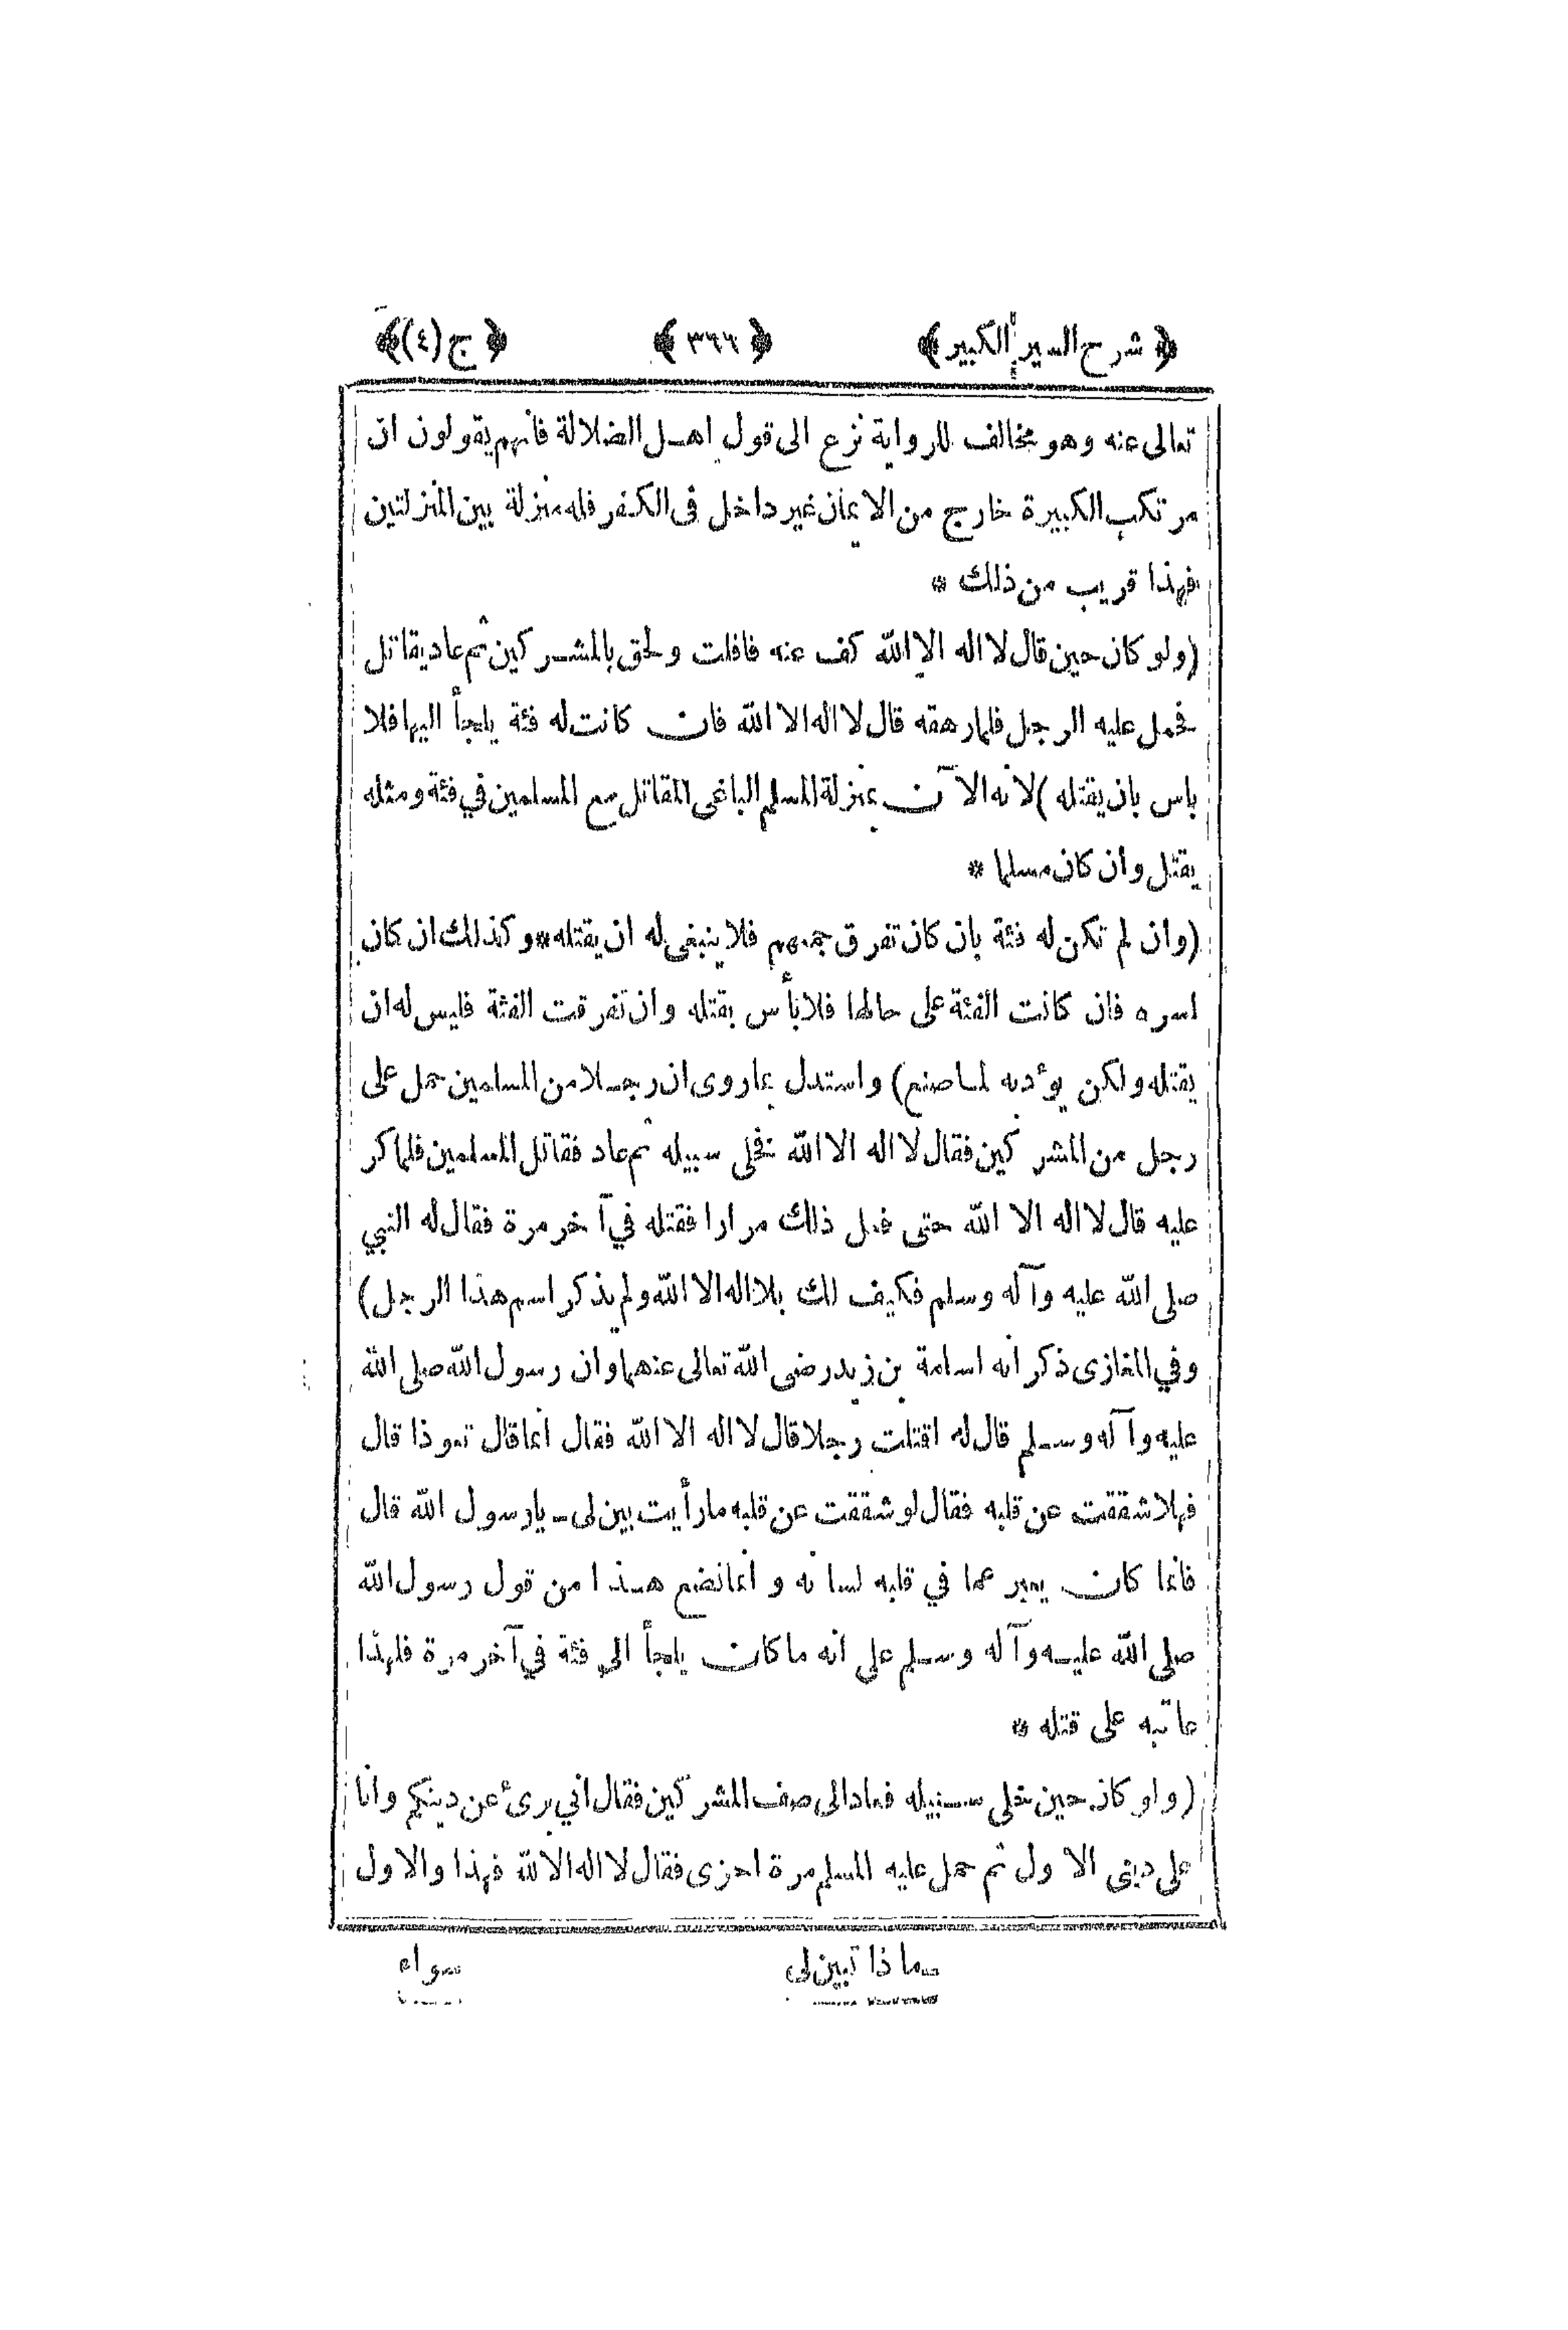 ﴿ شرح السير الكبير ﴾ ﴿ ٣٦٦ ﴾ ﴿ ج (٤) ﴾
تعالى عنه وهو مخالف للرواية نزع الى قول اهل الضلالة فانهم يقولون ان
مرتكب الكبيرة خارج من الايمان غير داخل فى الكفر فله منزلة بين المنزلتين
فهذا قريب من ذلك *
(ولو كان حين قال لا اله الا الله كف عنه فافلت ولحق بالمشركين ثم عاد يقاتل
فحمل عليه الرجل فلما رهقه قال لا اله الا الله فان كانت له فئة يلجأ اليها فلا
باس بان يقتله) لانه الآن بمنزلة المسلم الباغى المقاتل مع المسلمين في فئة ومثله
يقتل وان كان مسلما *
(وان لم تكن له فئة بان كان تفرق جمعهم فلا ينبغى له ان يقتله * وكذلك ان كان
اسره فان كانت الفئة على حالها فلا بأس بقتله وان تفرقت الفئة فليس له ان
يقتله ولكن يؤدبه لما صنع) واستدل بما روى ان رجلا من المسلمين حمل على
رجل من المشركين فقال لا اله الا الله فخلى سبيله ثم عاد فقاتل المسلمين فلما كر
عليه قال لا اله الا الله حتى فعل ذلك مرارا فقتله في آخر مرة فقال له النبي
صلى الله عليه وآله وسلم فكيف لك بلا اله الا الله ولم يذكر اسم هذا الرجل)
وفي المغازى ذكر انه اسامة بن زيد رضى الله تعالى عنهما وان رسول الله صلى الله
عليه وآله وسلم قال له اقتلت رجلا قال لا اله الا الله فقال انما قال تعوذا قال
فهلا شققت عن قلبه فقال لو شققت عن قلبه ما رأيت بين لى ـ يا رسول الله قال
فانما كان يعبر عما في قلبه لسانه وانما نضع هذا من قول رسول الله
صلى الله عليه وآله وسلم على انه ما كان يلجأ الى فئة في آخر مرة فلهذا
عاتبه على قتله *
(ولو كان حين خلى سبيله فعاد الى صف المشركين فقال اني برئ عن دينكم وانا
على دينى الاول ثم حمل عليه المسلم مرة اخرى فقال لا اله الا لله فهذا والاول
ـ ماذا تبين لى سواء